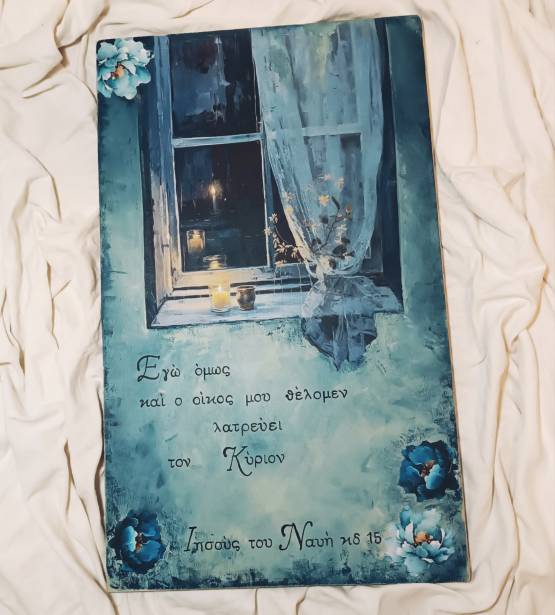 Εγὼ ὁμως
καὶ ο οἰκος μου θὲλομεν
λατρεὐει
τον Κὐριον
Ιησοὺς του Ναυὴ κδ 15